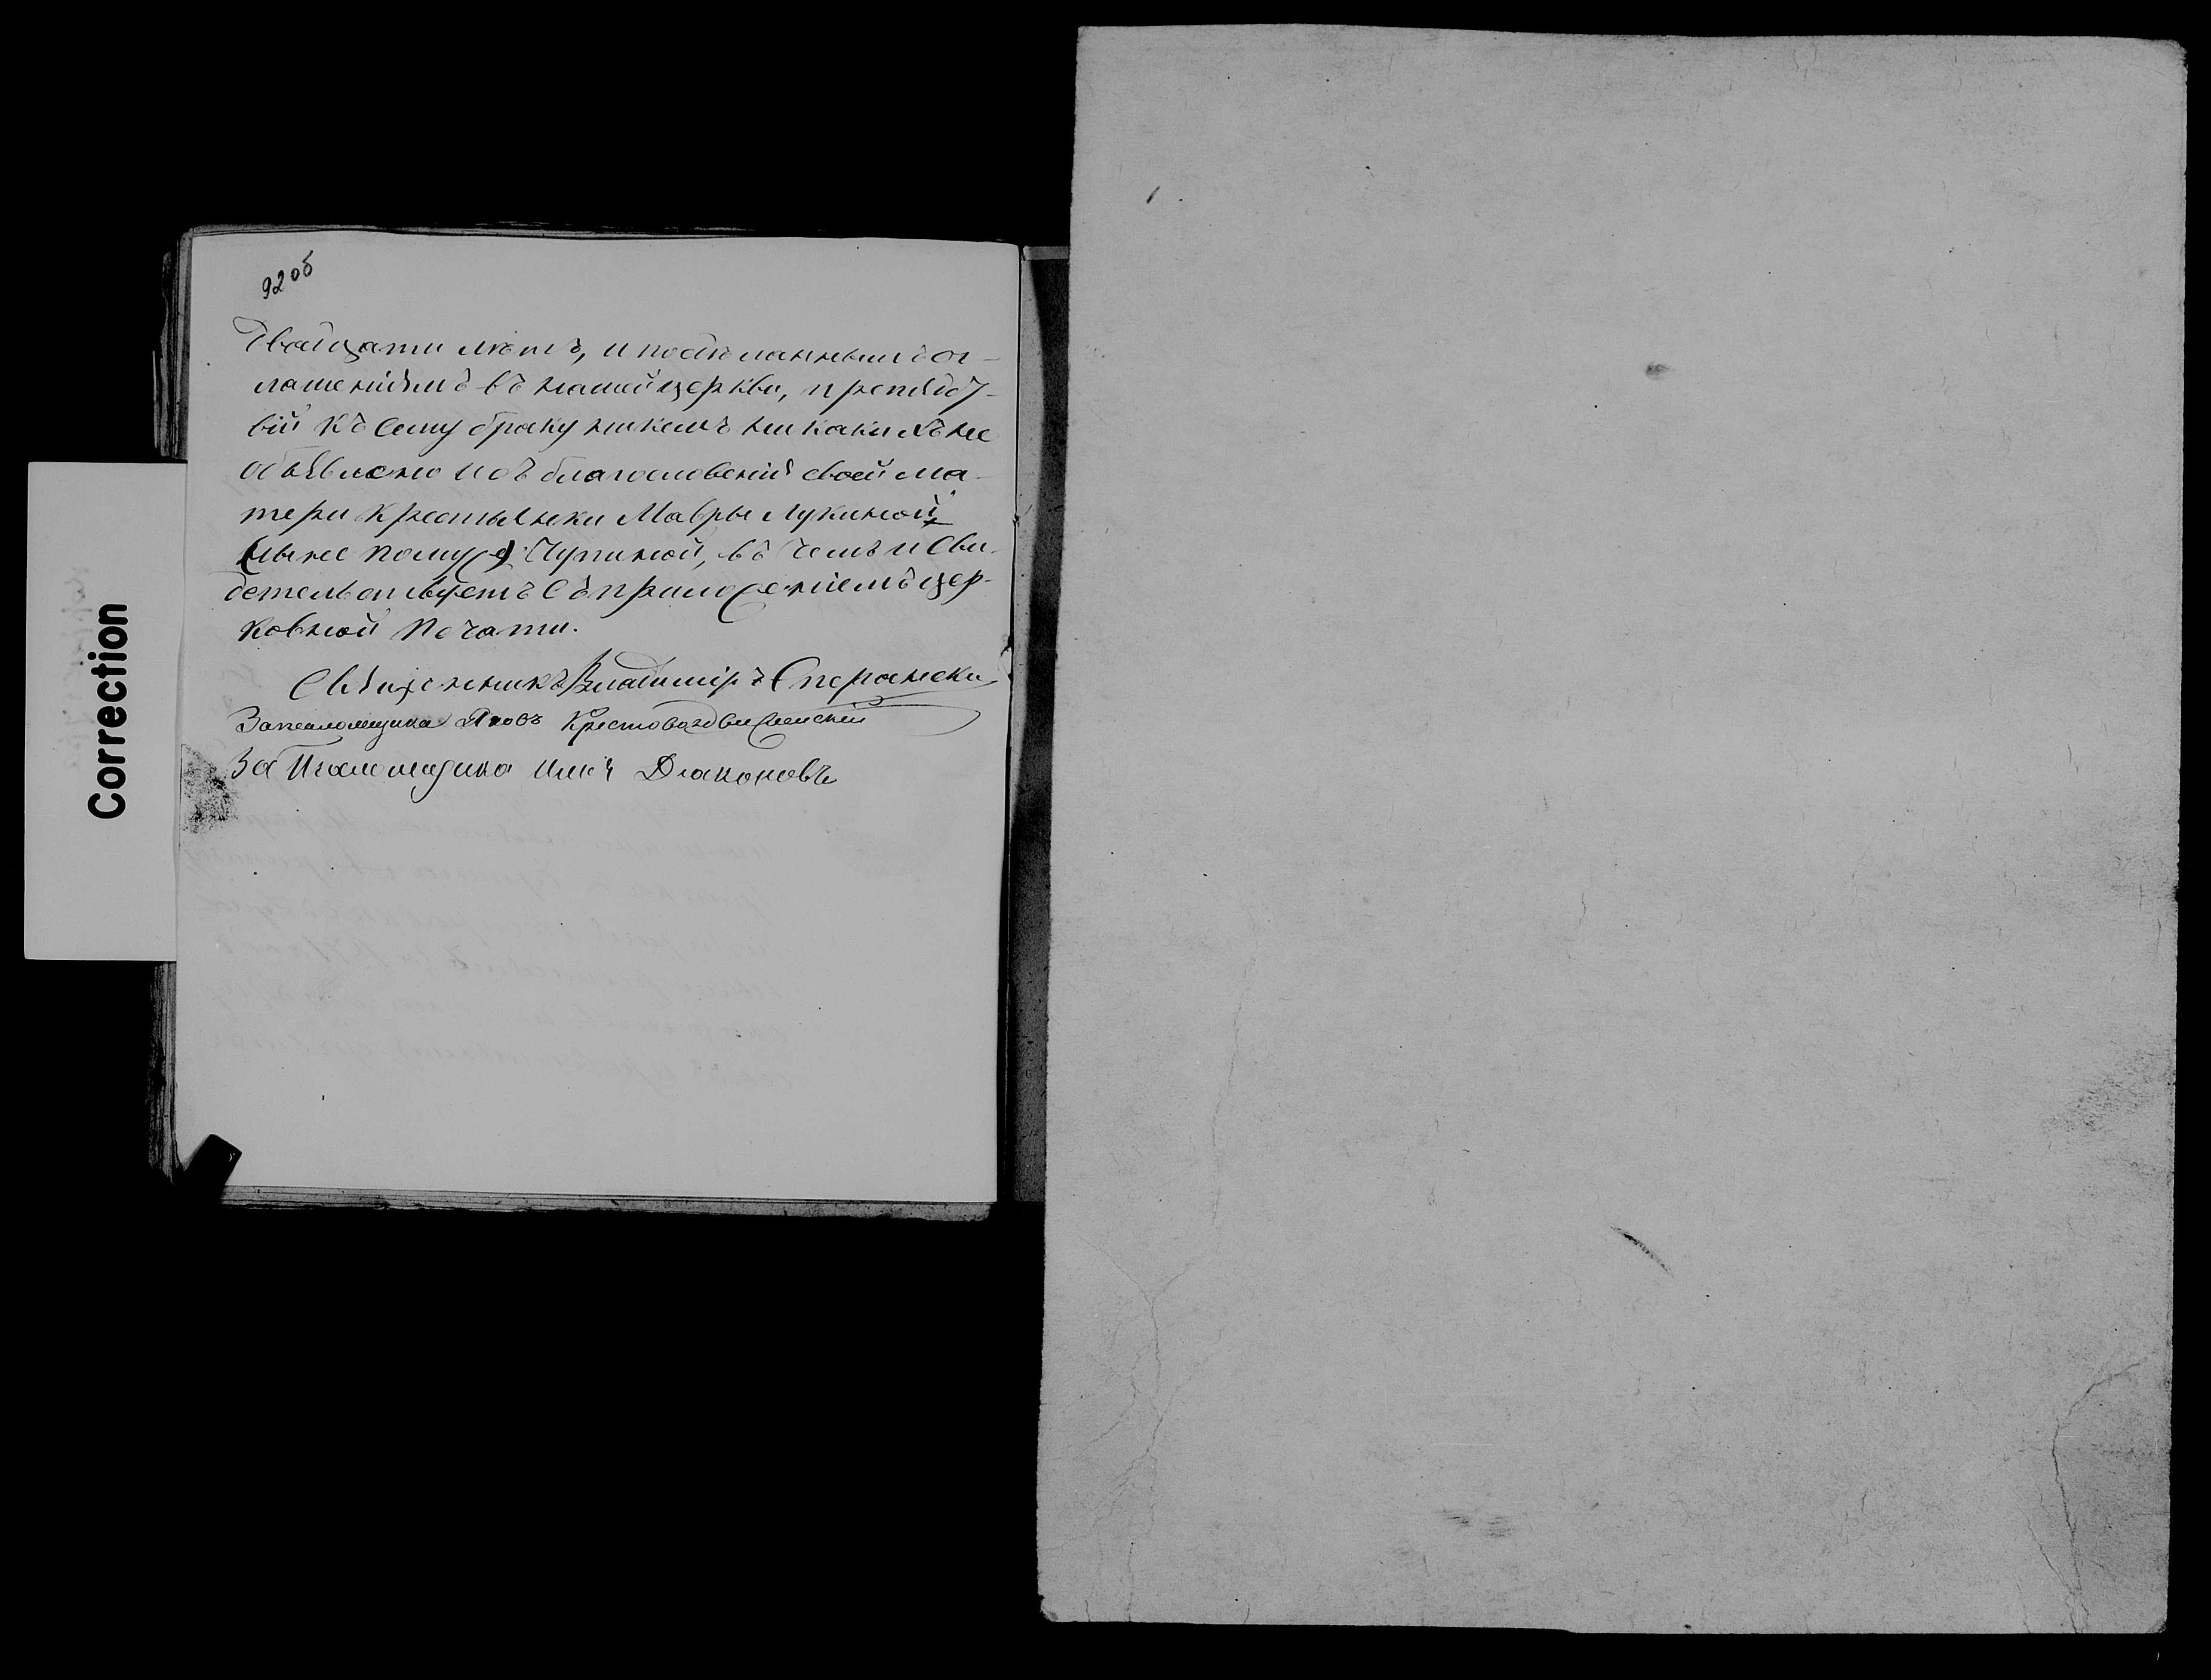 92 об
двадцати лѣтъ, и по сдѣланнымъ ог-
лашеніямъ въ нашей церкви, препятст-
вій къ сему браку никемъ никакихъ не
объявлено и съ благословенія своей ма-
тери крестьянки Мавры Лукиной
(ныне по мужу) Чупиной, въ чемъ и сви-
детельствуетъ съ приложеніемъ цер-
ковной печати.
Священникъ Владиміръ Сперански
За псаломщика Яковъ Крестовоздвиженскій
За Псаломщика Илія Дьяконовъ
Correction